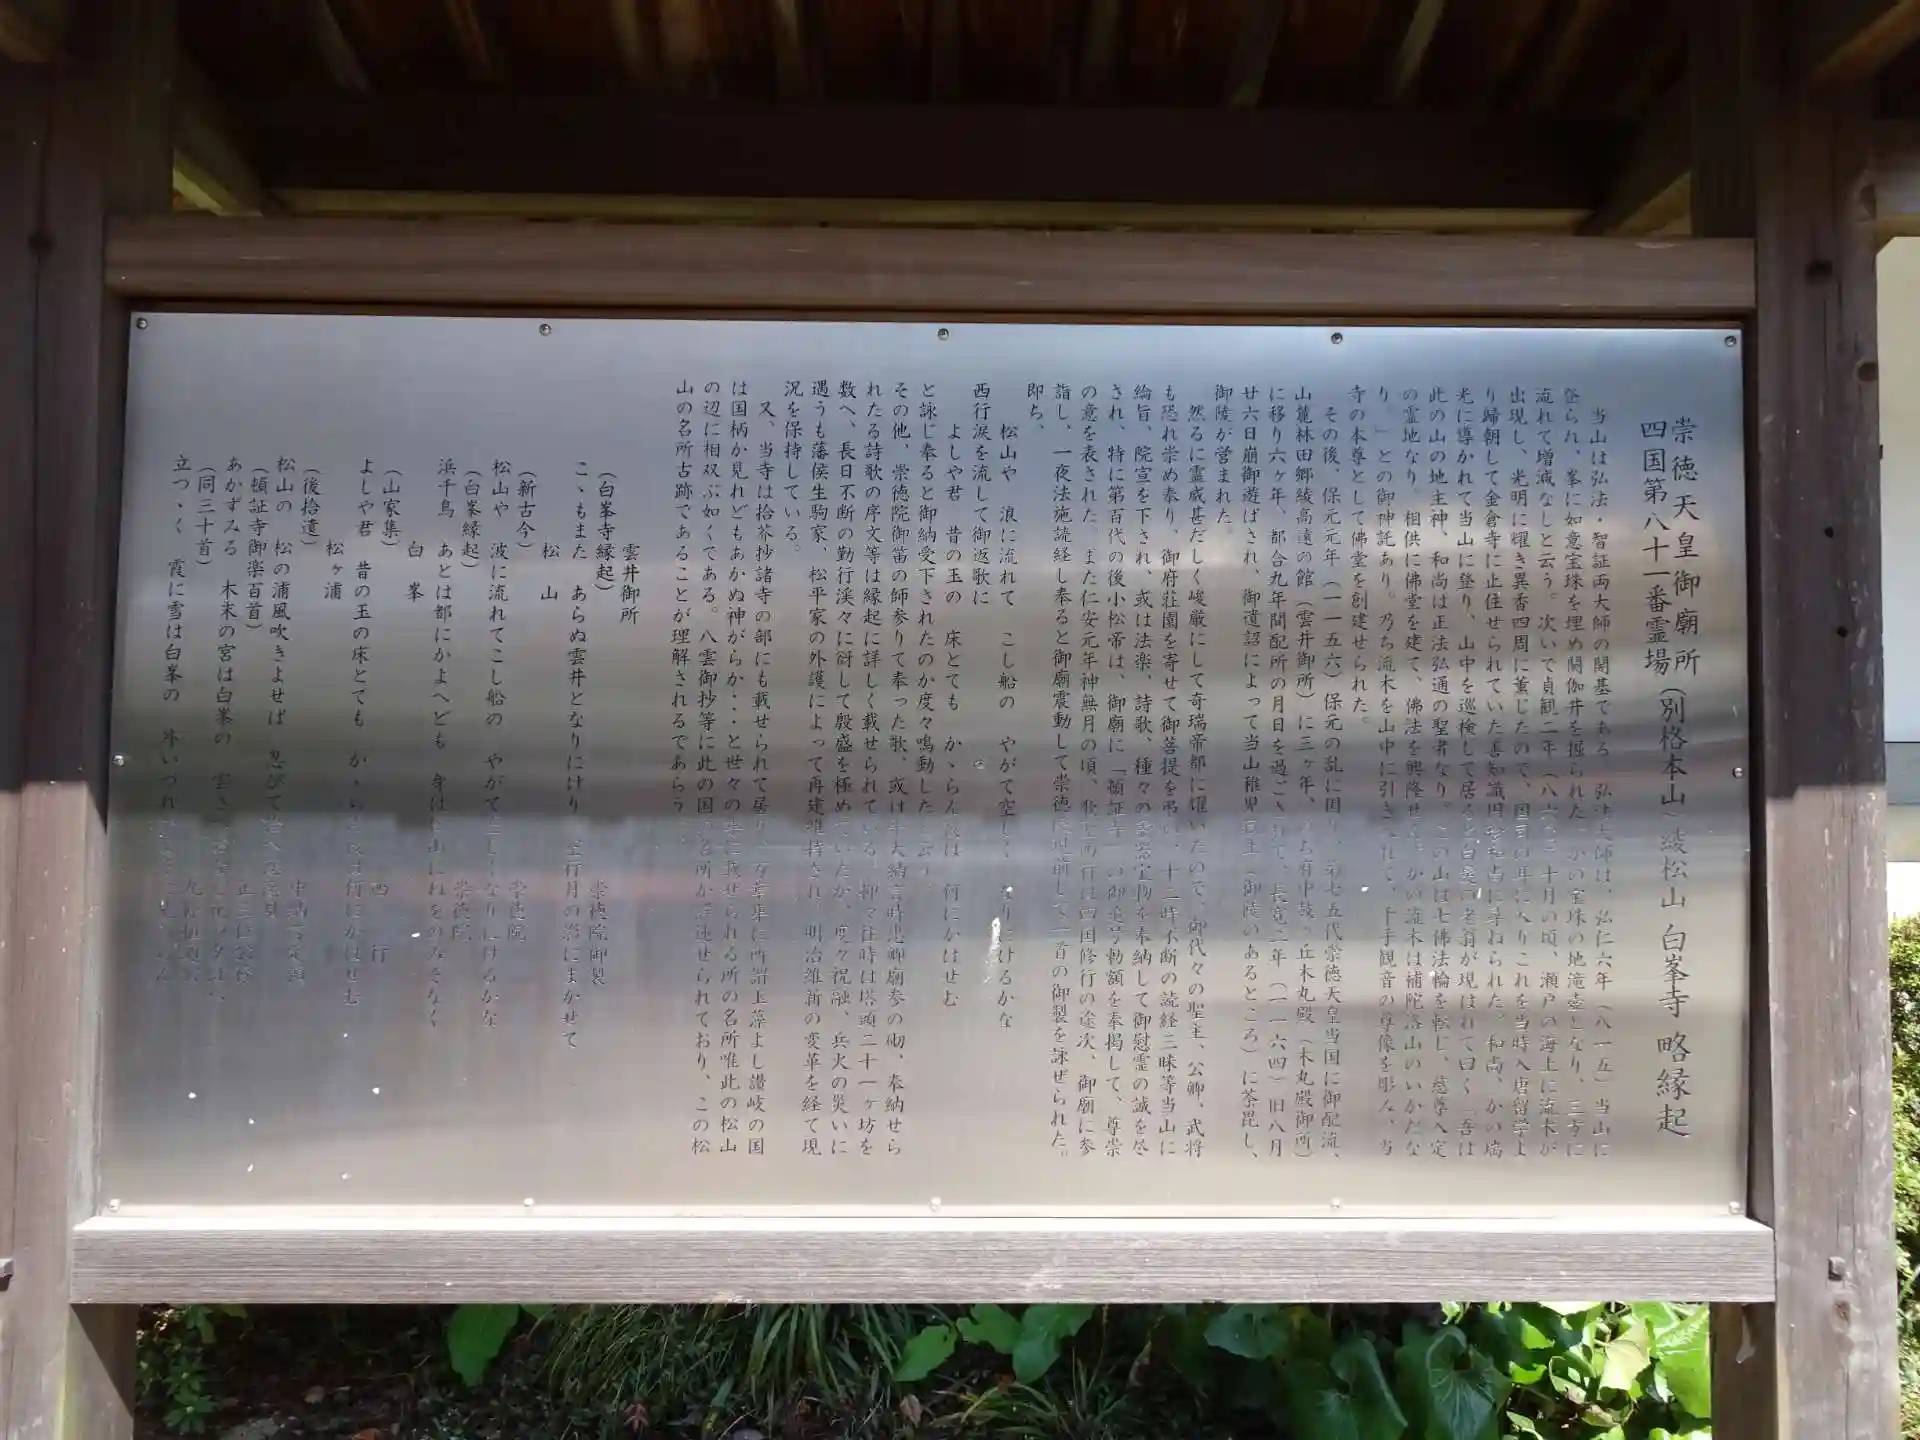 崇徳天皇御廟所
四国第八十一番霊場(別格本山)綾松山 白峯寺 略縁起
当山は弘法・智証両大師の開基である 弘法大師は、弘仁六年(八一五)当山に
登られ、峯に如意宝珠を埋め閼伽井を掘られた かの宝珠の地滝壺となり、三方に
流れて増減なしと云う。次いで貞観二年(八六〇)十月の頃、瀬戸の海上に流木が
出現し、光明に耀き異香四周に薫じたので、国司の耳に入りこれを当時入唐留学よ
り歸朝して金倉寺に止住せられていた善知識円珍和尚に尋ねられた。和尚、かの瑞
光に導かれて当山に登り、山中を巡検して居ると白髪の老翁が現はれて曰く「吾は
此の山の地主神、和尚は正法弘通の聖者なり。この山は七佛法輪を転じ、慈尊入定
の霊地なり。相供に佛堂を建て、佛法を興隆せん。かの流木は補陀落山のいかだな
り。」との御神託あり。乃ち流木を山中に引き入れて、千手観音の尊像を彫み、当
寺の本尊として佛堂を創建せられた。
その後、保元元年(一一五六)保元の乱に因り、第七五代崇徳天皇当国に御配流、
山麓林田郷綾高遠の館(雲井御所)に三ヶ年、のち府中鼓ヶ丘木丸殿(木丸殿御所)
に移り六ヶ年、都合九年間配所の月日を過ごされて、長寛二年(一一六四)旧八月
廿六日崩御遊ばされ、御遺詔によって当山稚児嶽上(御陵のあるところ)に荼毘し、
御陵が営まれた。
然るに霊威甚だしく峻厳にして奇瑞帝都に耀いたので、御代々の聖主、公卿、武将
も恐れ崇め奉り、御府荘園を寄せて御菩提を弔い、十二時不断の読経三昧等当山に
綸旨、院宣を下され、或は法楽、詩歌、種々の霊器宝物を奉納して御慰霊の誠を尽
され、特に第百代の後小松帝は、御廟に「頓証寺」の御追号勅額を奉掲して、尊崇
の意を表された。また仁安元年神無月の頃、歌聖西行は四国修行の途次、御廟に参
詣し、一夜法施読経し奉ると御廟震動して崇徳院現前して一首の御製を詠ぜられた。
即ち、
松山や 浪に流れて こし船の やがて空しく なりにけるかな
西行涙を流して御返歌に
よしや君 昔の玉の 床とても かゝらん後は 何にかはせむ
と詠じ奉ると御納受下されたのか度々鳴動したと云う。
その他、崇徳院御笛の師参りて奉った歌、或は平大納言時忠卿廟参の砌、奉納せら
れたる詩歌の序文等は縁起に詳しく載せられている。抑々往時は塔頭二十一ヶ坊を
数へ、長日不断の勤行渓々に谺して殷盛を極めていたが、度々祝融、兵火の災いに
遇うも藩侯生駒家、松平家の外護によって再建維持され、明治維新の変革を経て現
況を保持している。
又、当寺は拾芥抄諸寺の部にも載せられて居り、万葉集に所謂玉藻よし讃岐の国
は国柄か見れどもあかぬ神がらか・・・と世々の集に載せられる所の名所唯此の松山
の辺に相双ぶ如くである。八雲御抄等に此の国の名所が詳述せられており、この松
山の名所古跡であることが理解されるであらう。
雲井御所
(白峯寺縁起) 崇徳院御製
こゝもまた あらぬ雲井となりにけり 空行月の影にまかせて
松山
(新古今) 崇徳院
松山や 波に流れてこし船の やがて空しくなりにけるかな
(白峯縁起) 崇徳院
浜千鳥 あとは都にかよへども 身は松山にねをのみぞなく
白峯
(山家集) 西行
よしや君 昔の玉の床とても かゝらん後は何にかはせむ
松ヶ浦
(後拾遺) 中納言定頼
松山の 松の浦風吹きよせば 忍びて拾へ恋忘貝
(頓証寺御楽百首)
あかずみる 木末の宮は白峯の
(同三十首)
立つゞく 霞に雪は白峯の